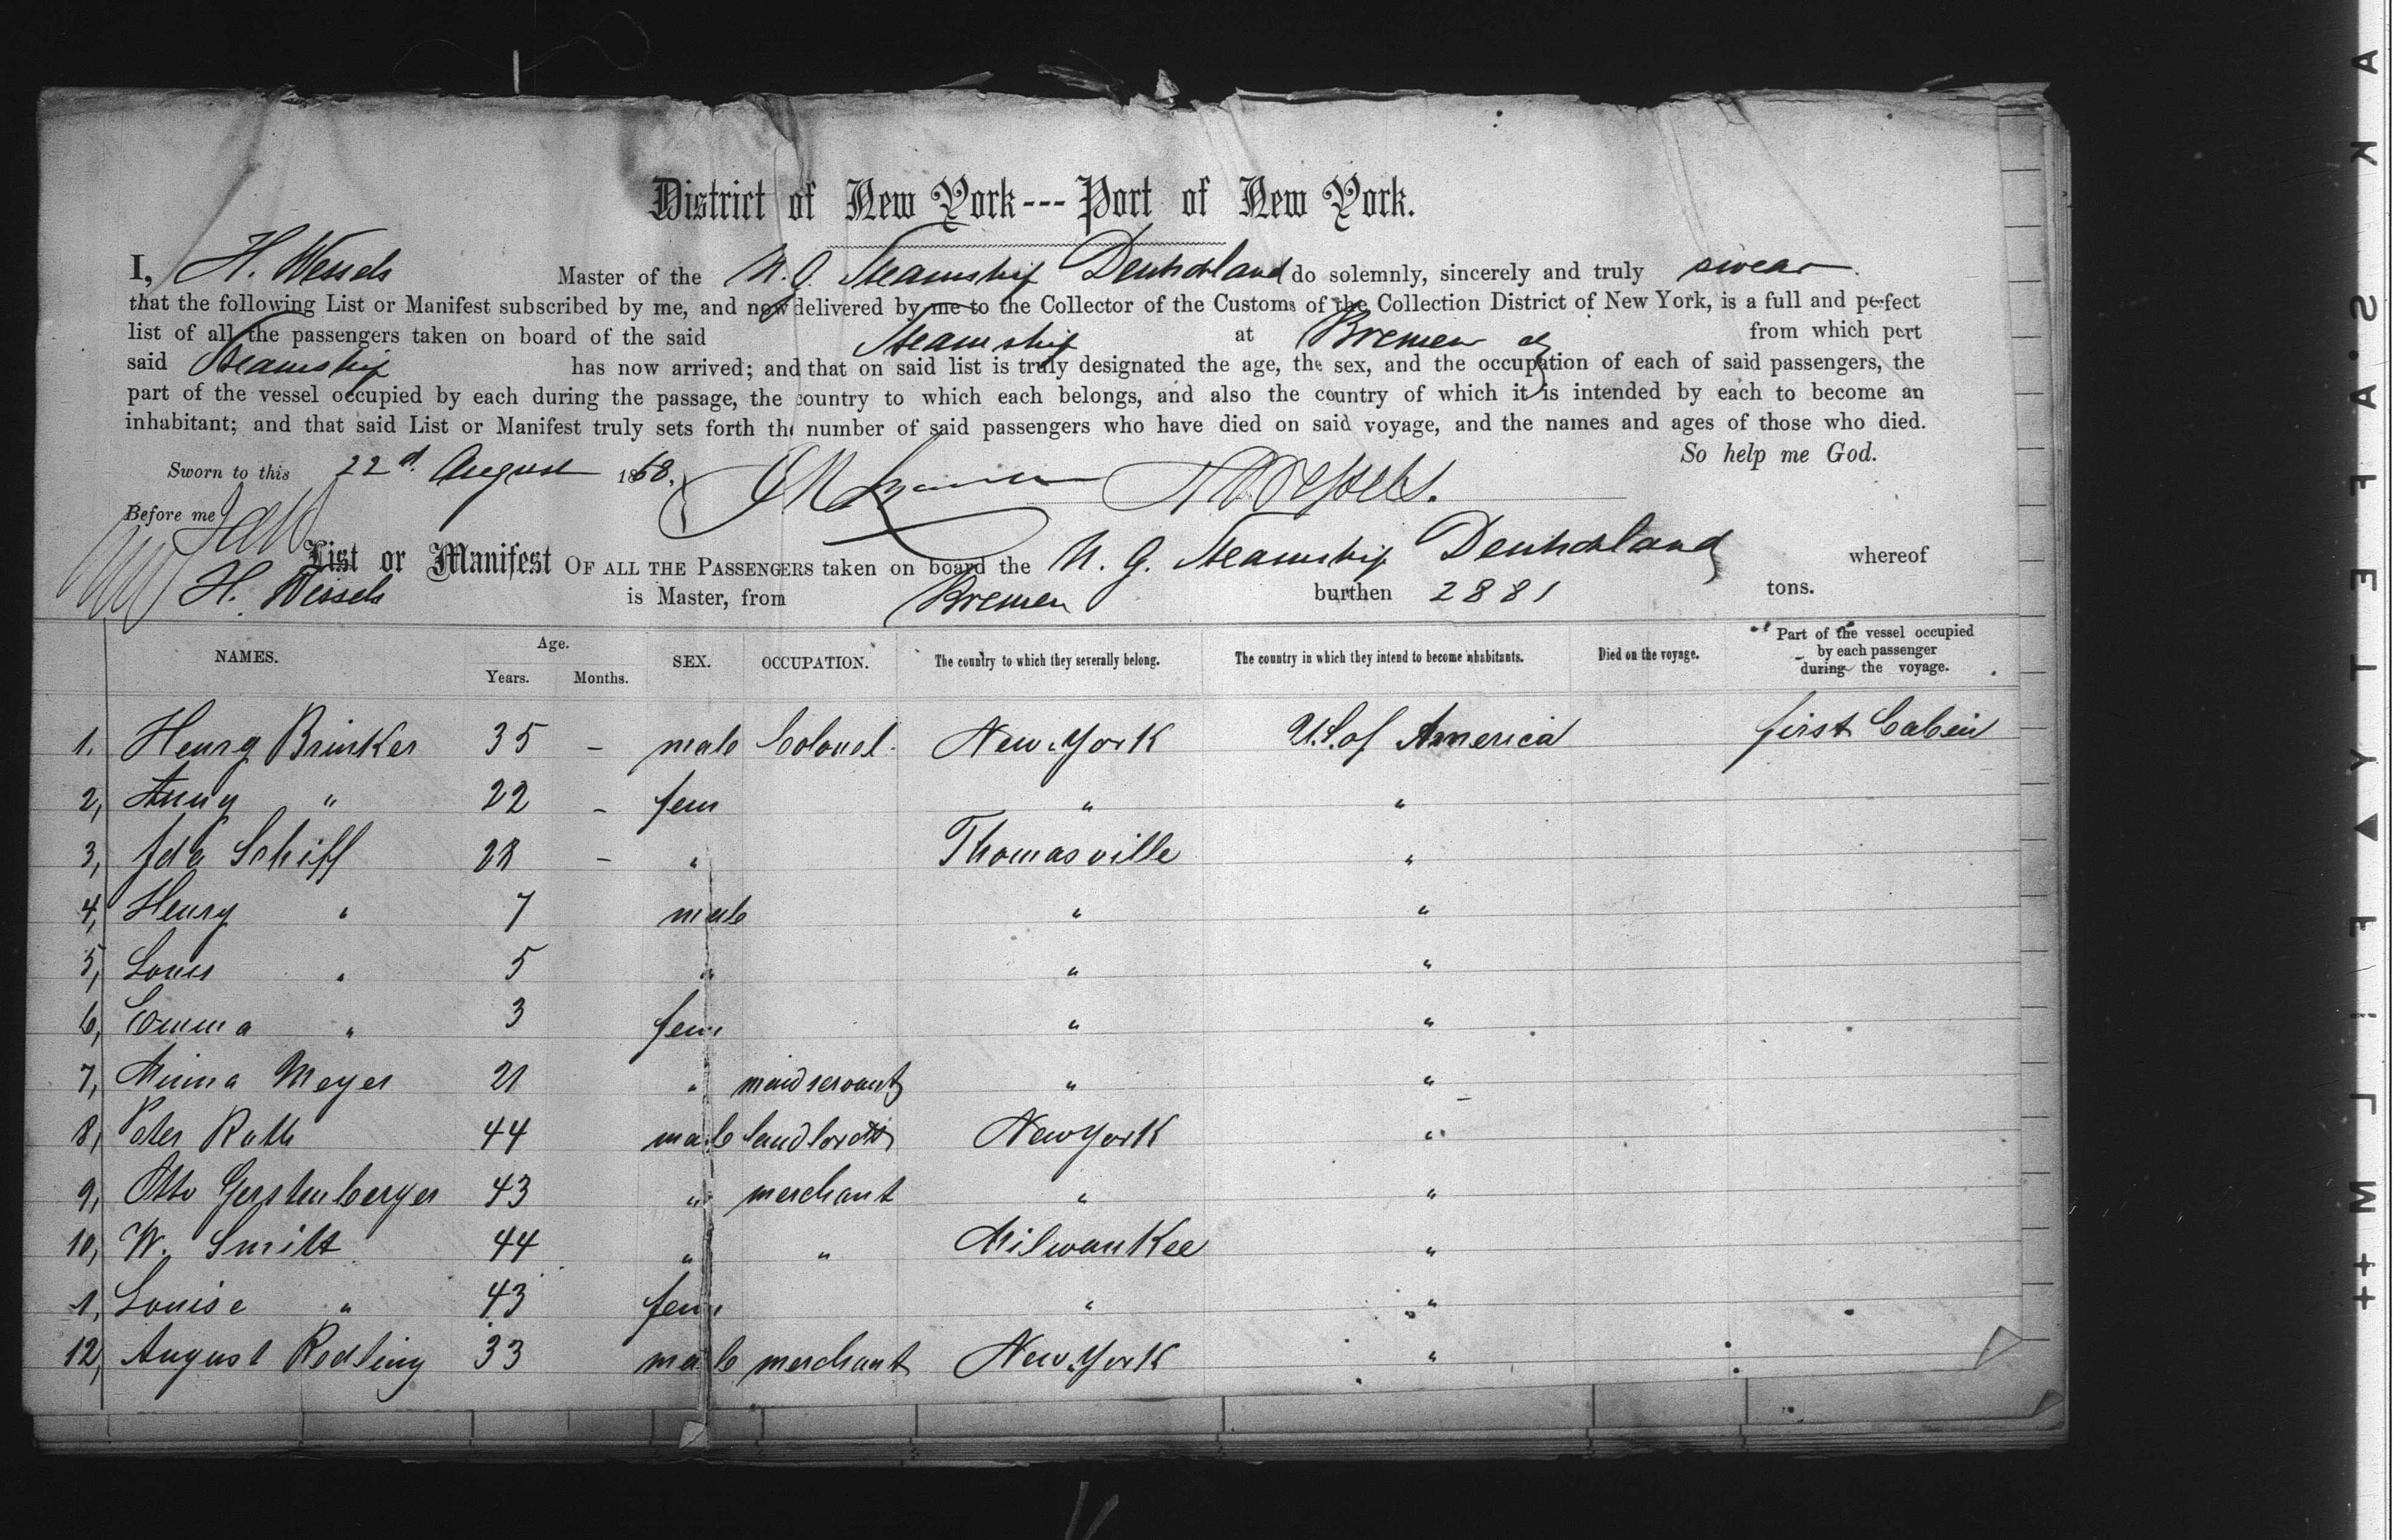 District of New York---Port of New York.
I, H. Wessels Master of the N. G. Steamship Deutschland do solemnly, sincerely and truly swear.
that the following List or Manifest subscribed by me, and now delivered by me to the Collector of the Customs of the Collection District of New York, is a full and perfect
list of all the passengers taken on board of the said Steamship at Bremen from which port
said Steamship has now arrived; and that on said list is truly designated the age, the sex, and the occupation of each of said passengers, the
part of the vessel occupied by each during the passage, the country to which each belongs, and also the country of which it is intended by each to become an
inhabitant; and that said List or Manifest truly sets forth the number of said passengers who have died on said voyage, and the names and ages of those who died.
So help me God.
Sworn to this 22d. August 1868, H Wessels.
Before me
List or Manifest OF ALL THE PASSENGERS taken on board the N. G. Steamship Deutschland whereof
H. Wessels is Master, from Bremen burthen 2881 tons.
NAMES. Age. Years. Months. SEX. OCCUPATION. The country to which they severally belong. The country in which they intend to become inhabitants. Died on the voyage. Part of the vessel occupied by each passenger during the voyage.
1. Henry Brinker 35 – male Colonel. New-York U.S. of America first Cabin
2, Anny " 22 – fem " "
3, Ida Schiff 28 – " Thomasville "
4, Henry " 7 male " "
5, Louis " 5 " " "
6, Emma " 3 fem " "
7, Minna Meyer 21 " maidservant " "
8, Peter Roth 44 male landlord New York "
9, Otto Gerstenberger 43 " merchant " "
10, W. Smitt 44 " " Milwaukee "
1, Louise " 43 fem " "
12, August Redling 33 male merchant New-York "